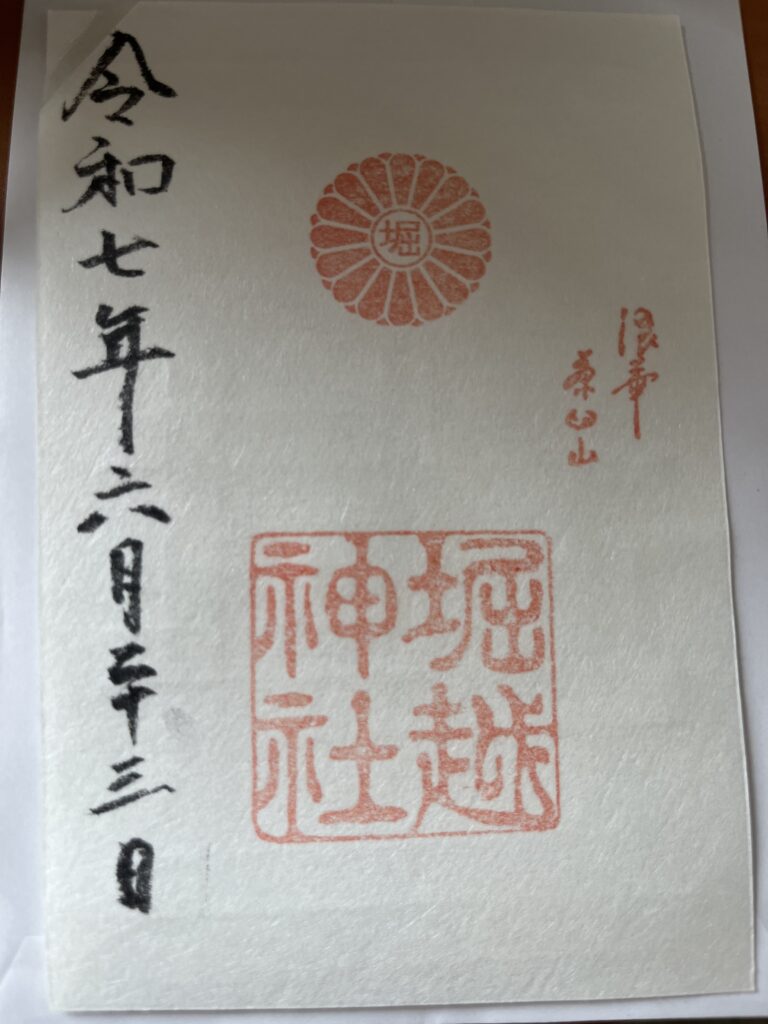 浪華
茶臼山
堀
堀越
神社
令和七年六月二十三日